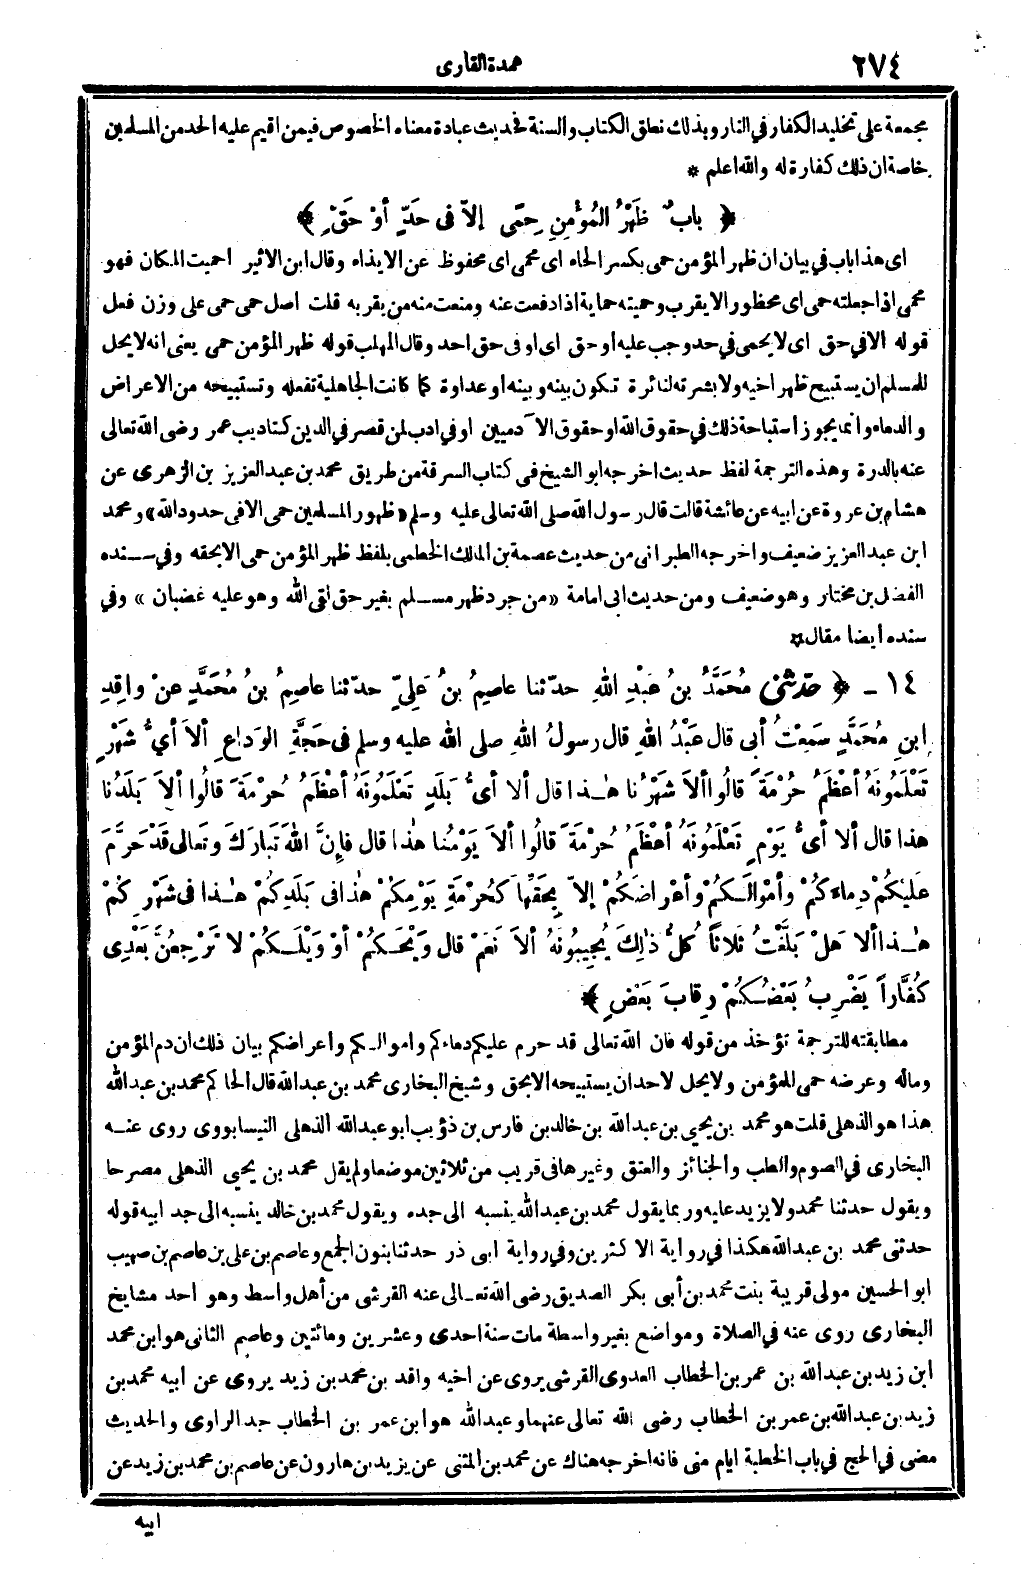 ٢٧٤
عمدة القارى
مجمعة على تخليد الكفار في النار وبذلك نطق الكتاب والسنة فحديث عبادة معناه الخصوص فيمن اقيم عليه الحد من المسلمين
خاصة ان ذلك كفارة له والله اعلم *
﴿ بابٌ ظَهْرُ المُؤْمِنِ حِمًى إلاّ فى حَدٍّ أوْ حَقٍّ ﴾
اى هذا باب في بيان ان ظهر المؤمن حمى بكسر الحاء اى محمى اى محفوظ عن الايذاء وقال ابن الاثير احميت المكان فهو
محمى اذا جعلته حمى اى محظورا لا يقرب وحميته حماية اذا دفعت عنه ومنعت منه من يقربه قلت اصل حمى حمى على وزن فعل
قوله الا في حق اى لا يحمى في حد وجب عليه او حق اى او فى حق احد وقال المهلب قوله ظهر المؤمن حمى يعنى انه لا يحل
للمسلم ان يستبيح ظهر اخيه ولا بشرته لنائرة تكون بينه وبينه او عداوة كما كانت الجاهلية تفعله وتستبيحه من الاعراض
والدماء وانما يجوز استباحة ذلك في حقوق الله او حقوق الآدميين او في ادب لمن قصر في الدين كتاديب عمر رضى الله تعالى
عنه بالدرة وهذه الترجمة لفظ حديث اخرجه ابو الشيخ فى كتاب السرقة من طريق محمد بن عبد العزيز بن الزهرى عن
هشام بن عروة عن ابيه عن عائشة قالت قال رسول الله صلى الله تعالى عليه وسلم «ظهور المسلمين حمى الا فى حدود الله» ومحمد
ابن عبد العزيز ضعيف واخرجه الطبرانى من حديث عصمة بن المالك الخطمى بلفظ ظهر المؤمن حمى الا بحقه وفي سنده
الفضل بن مختار وهو ضعيف ومن حديث ابى امامة «من جرد ظهر مسلم بغير حق لقى الله وهو عليه غضبان» وفي
سنده ايضا مقال *
١٤ - ﴿ حدّثنى مُحَمَّدُ بنُ عَبْدِ اللهِ حدّثنا عاصِمُ بنُ عَلِيٍّ حدّثنا عاصِمُ بنُ مُحَمَّدٍ عنْ واقِدِ
ابنِ مُحَمَّدٍ سَمِعْتُ أبى قال عَبْدُ اللهِ قال رسولُ اللهِ صلى الله عليه وسلم فى حَجَّةِ الوَداعِ ألاَ أيُّ شَهْرٍ
تَعْلَمُونَهُ أعْظَمُ حُرْمَةً قالُوا ألاَ شَهْرُنا هٰذا قال ألا أىُّ بَلَدٍ تَعْلَمُونَهُ أعْظَمُ حُرْمَةً قالُوا ألاَ بَلَدُنا
هذا قال ألا أىُّ يَوْمٍ تَعْلَمُونَهُ أعْظَمُ حُرْمَةً قالُوا ألاَ يَوْمُنا هٰذا قال فإنَّ اللهَ تَبارَكَ وتَعالى قَدْ حَرَّمَ
عَلَيْكُمْ دِماءَكُمْ وأمْوالَكُمْ وأعْراضَكُمْ إلاّ بِحَقِّها كَحُرْمَةِ يَوْمِكُمْ هٰذا فى بَلَدِكُمْ هٰذا فى شَهْرِكُمْ
هٰذا ألا هَلْ بَلَّغْتُ ثَلاثاً كُلُّ ذٰلِكَ يُجِيبُونَهُ ألاَ نَعَمْ قال وَيْحَكُمْ أوْ وَيْلَكُمْ لا تَرْجِعُنَّ بَعْدِى
كُفَّاراً يَضْرِبُ بَعْضُكُمْ رِقابَ بَعْضٍ ﴾
مطابقته للترجمة تؤخذ من قوله فان الله تعالى قد حرم عليكم دماءكم واموالكم واعراضكم بيان ذلك ان دم المؤمن
وماله وعرضه حمى للمؤمن ولا يحل لاحد ان يستبيحه الا بحق وشيخ البخارى محمد بن عبد الله قال الحاكم محمد بن عبد الله
هذا هو الذهلى قلت هو محمد بن يحيى بن عبد الله بن خالد بن فارس بن ذؤيب ابو عبد الله الذهلى النيسابورى روى عنه
البخارى في الصوم والطب والجنائز والعتق وغيرها فى قريب من ثلاثين موضعا ولم يقل محمد بن يحيى الذهلى مصرحا
ويقول حدثنا محمد ولا يزيد عليه وربما يقول محمد بن عبد الله ينسبه الى جده ويقول محمد بن خالد ينسبه الى جد ابيه قوله
حدثنى محمد بن عبد الله هكذا في رواية الاكثرين وفي رواية ابى ذر حدثنا بنون الجمع وعاصم بن على بن عاصم بن صهيب
ابو الحسين مولى قريبة بنت محمد بن أبى بكر الصديق رضى الله تعالى عنه القرشى من أهل واسط وهو احد مشايخ
البخارى روى عنه في الصلاة ومواضع بغير واسطة مات سنة احدى وعشرين ومائتين وعاصم الثانى هو ابن محمد
ابن زيد بن عبد الله بن عمر بن الخطاب العدوى القرشى يروى عن اخيه واقد بن محمد بن زيد يروى عن ابيه محمد بن
زيد بن عبد الله بن عمر بن الخطاب رضى الله تعالى عنهما وعبد الله هو ابن عمر بن الخطاب جد الراوى والحديث
مضى في الحج في باب الخطبة ايام منى فانه اخرجه هناك عن محمد بن المثنى عن يزيد بن هارون عن عاصم بن محمد بن زيد عن
ابيه